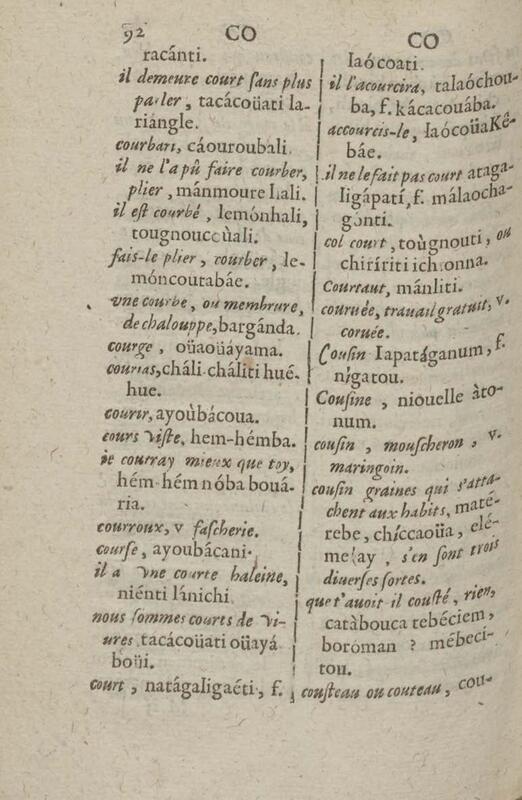 92 CO
racánti.
il demeure court sans plus
parler, tacácoüati la-
riángle.
courban, cáouroubali.
il ne l'a pû faire courber,
plier, mánmoure Lali.
il est courbé, lemónhali,
tougnouccùali.
fais-le plier, courber, le-
móncoutabáe.
vne courbe, ou membrure,
de chalouppe, bargánda.
courge, oüaoüáyama.
courias, cháli-cháliti hué-
hue.
courir, ayoùbácoua.
cours viste, hem-hémba.
ie courray mieux que toy,
hém-hém nóba bouá-
ria.
courroux, v fascherie.
course, ayoubácani.
il a vne courte haleine,
niénti lánichi
nous sommes courts de vi-
ures, tacácoüati oüayá
boüi.
court, natágaligaéti, f.
CO
Iaócoati.
il l'acourcira, talaóchou-
ba, f. kácacouába.
accourcis-le, IaócoüaKé-
báe.
il ne le fait pas court ataga-
ligápatí, f. málaocha-
gónti.
col court, toùgnouti, ou
chiríriti ichronna.
Courtaut, mánliti.
couruée, trauail gratuit, v.
coruée.
Cousin Iapatáganum, f.
nigatou.
Cousine, niouelle àto-
num.
cousin, mouscheron, v.
maringoin.
cousin graines qui s'atta-
chent aux habits, maté-
rebe, chíccaoüa, elé-
melay, s'en sont trois
diuerses sortes.
que t'auoit il cousté, rien,
catàbouca tebéciem,
boróman ? mébeci-
tou.
cousteau ou couteau, cou-